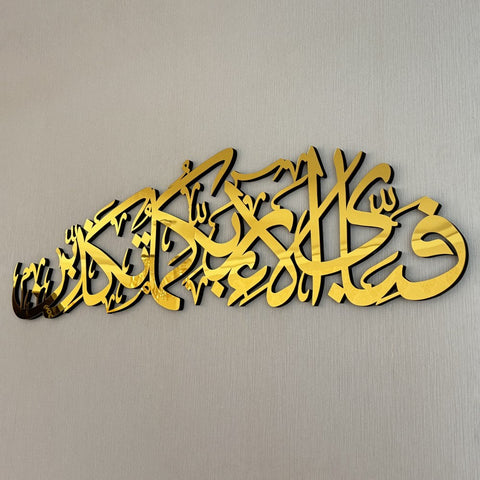 فَبِأَيِّ آلَاءِ رَبِّكُمَا تُكَذِّبَانِ